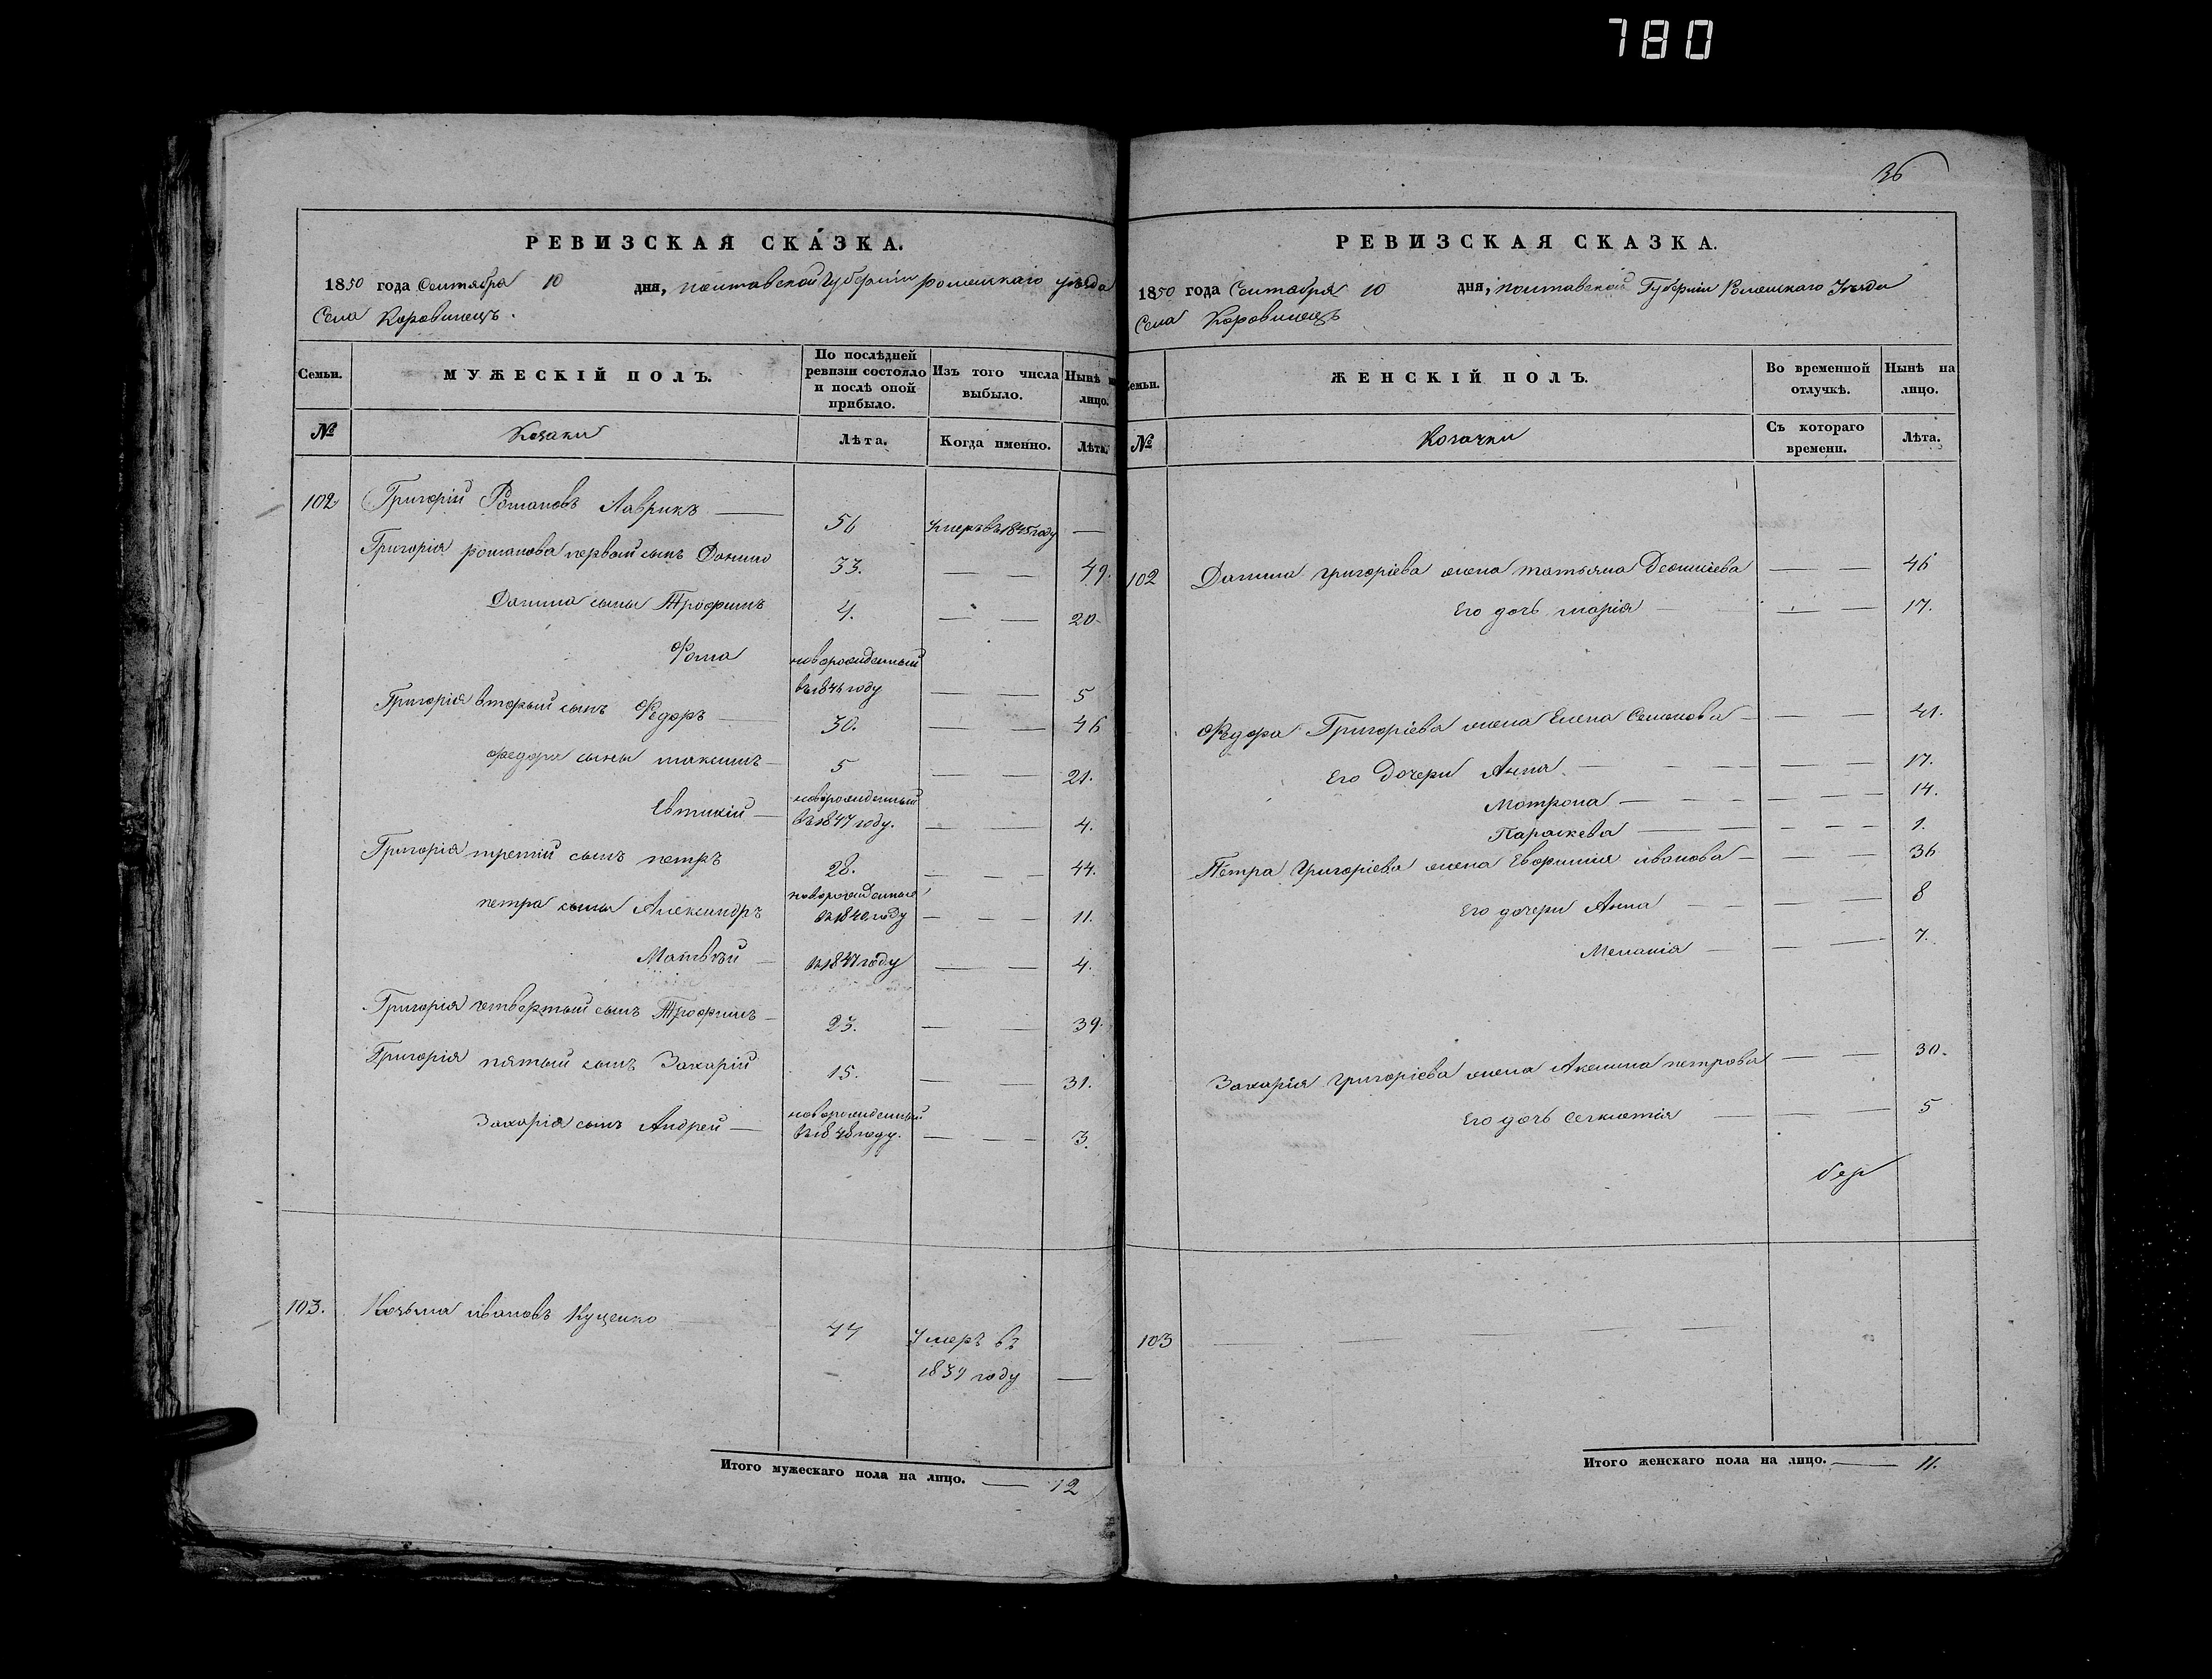 780
36
РЕВИЗСКАЯ СКАЗКА.
1850 года Сентября 10 дня, полтавской Губернии роменскаго уѣзда
Села Коровинецъ.
Семьи.
МУЖЕСКІЙ ПОЛЪ.
По послѣдней ревизіи состояло и послѣ оной прибыло.
Изъ того числа выбыло.
Нынѣ на лицо.
№
Козаки
Лѣта.
Когда именно.
Лѣта.
102 Григорій Романовъ Лаврикъ — 56 Умеръ въ 1845 году —
Григорія романова первый сынъ Данило 33. — — 49.
Данила сыны Трофимъ 4. — — 20
Фома новорожденный
въ 1846 году — — 5
Григорія вторый сынъ Федоръ — 30. — — 46
федора сыны максимъ — 5 — — 21.
Евтихій — новорожденный
въ 1847 году. — — 4.
Григорія третій сынъ петръ 28. — — 44.
петра сыны Александръ новорожденные
въ 1840 году — — 11.
Матвѣй — въ 1847 году — — 4.
Григорія четвертый сынъ Трофимъ — 23. — — 39.
Григорія пятый сынъ Захарій 15. — — 31.
Захарія сынъ Андрей — новорожденный
въ 1848 году. — — 3.
103. Козьма ивановъ Куценко 44 Умеръ въ
1839 году —
Итого мужескаго пола на лицо. — 12
РЕВИЗСКАЯ СКАЗКА.
1850 года Сентября 10 дня, полтавской Губерніи Роменскаго Уѣзда
Села Коровинецъ
Семьи.
ЖЕНСКІЙ ПОЛЪ.
Во временной отлучкѣ.
Нынѣ на лицо.
№
Козачки
Съ котораго времени.
Лѣта.
102 Данила григоріева жена татьяна — — 46
Его дочь марія — — — 17.
Федора Григоріева жена Елена Семенова — — — 41.
Его Дочери Анна — — — 17.
Мотрона — — — 14.
Параскева — — — 1.
Петра Григоріева жена Евфимія иванова — — — 36
Его дочери Анна — — — 8
Меланія — — — 7.
Захарія григоріева жена Акелина петрова — — 30.
Его дочь — — — 5
103 — — — —
Итого женскаго пола на лицо. — 11.